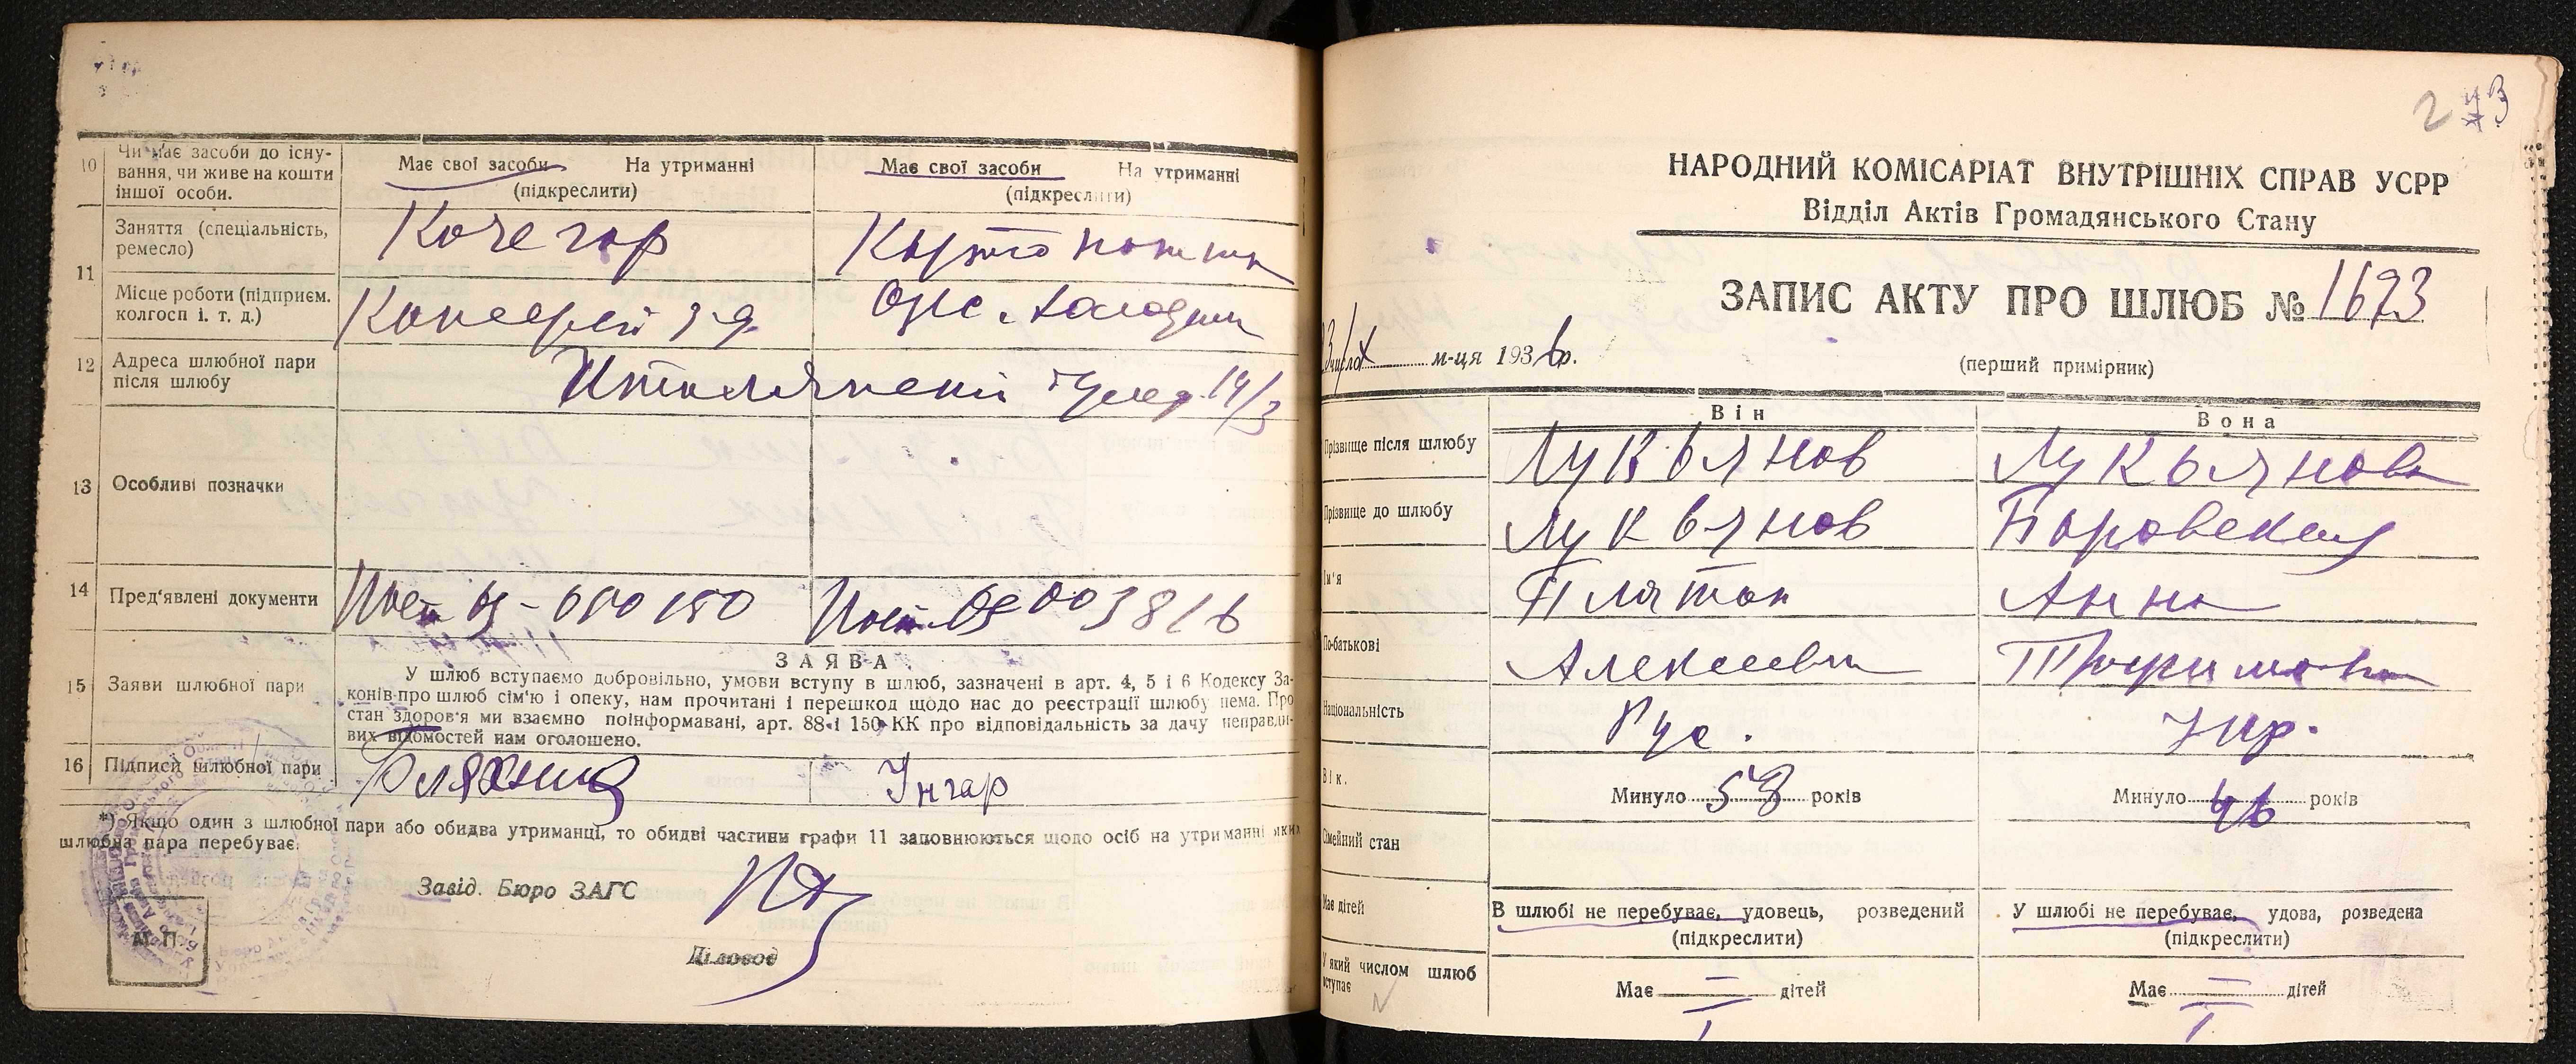 10 Чи має засоби до існу-
вання, чи живе на кошти
іншої особи.
Має свої засоби На утриманні
(підкреслити)
Має свої засоби На утриманні
(підкреслити)
11
Заняття (спеціальність,
ремесло)
Кочегар
Місце роботи (підприєм.
колгосп і. т. д.)
12 Адреса шлюбної пари
після шлюбу
14/3
13 Особливі позначки
14 Пред'явлені документи
15 Заяви шлюбної пари
ЗАЯВА
У шлюб вступаємо добровільно, умови вступу в шлюб, зазначені в арт. 4, 5 і 6 Кодексу За-
конів про шлюб сім'ю і опеку, нам прочитані і перешкод щодо нас до реєстрації шлюбу нема. Про
стан здоров'я ми взаємно поінформавані, арт. 88 і 150 КК про відповідальність за дачу неправди-
вих відомостей нам оголошено.
16 Підписи шлюбної пари
Унгар
*) Якщо один з шлюбної пари або обидва утриманці, то обидві частини графи 11 заповнюються щодо осіб на утриманні яких
шлюбна пара перебуває.
Завід. Бюро ЗАГС
Діловод
М.П.
НАРОДНИЙ КОМІСАРІАТ ВНУТРІШНІХ СПРАВ УСРР
Відділ Актів Громадянського Стану
ЗАПИС АКТУ ПРО ШЛЮБ № 1673
числа X м-ця 1936 р.
(перший примірник)
Він
Вона
Прізвище після шлюбу
Лукьянов
Лукьянова
Прізвище до шлюбу
Лукьянов
Боровская
Ім'я
Платон
Анна
По-батькові
Алексеевич
Національність
Рус.
Укр.
Вік.
Минуло 53 років
Минуло 46 років
Сімейний стан
В шлюбі не перебуває, удовець, розведений
(підкреслити)
У шлюбі не перебуває, удова, розведена
(підкреслити)
Має дітей
Має — дітей
Має — дітей
У який числом шлюб
вступає
I
I